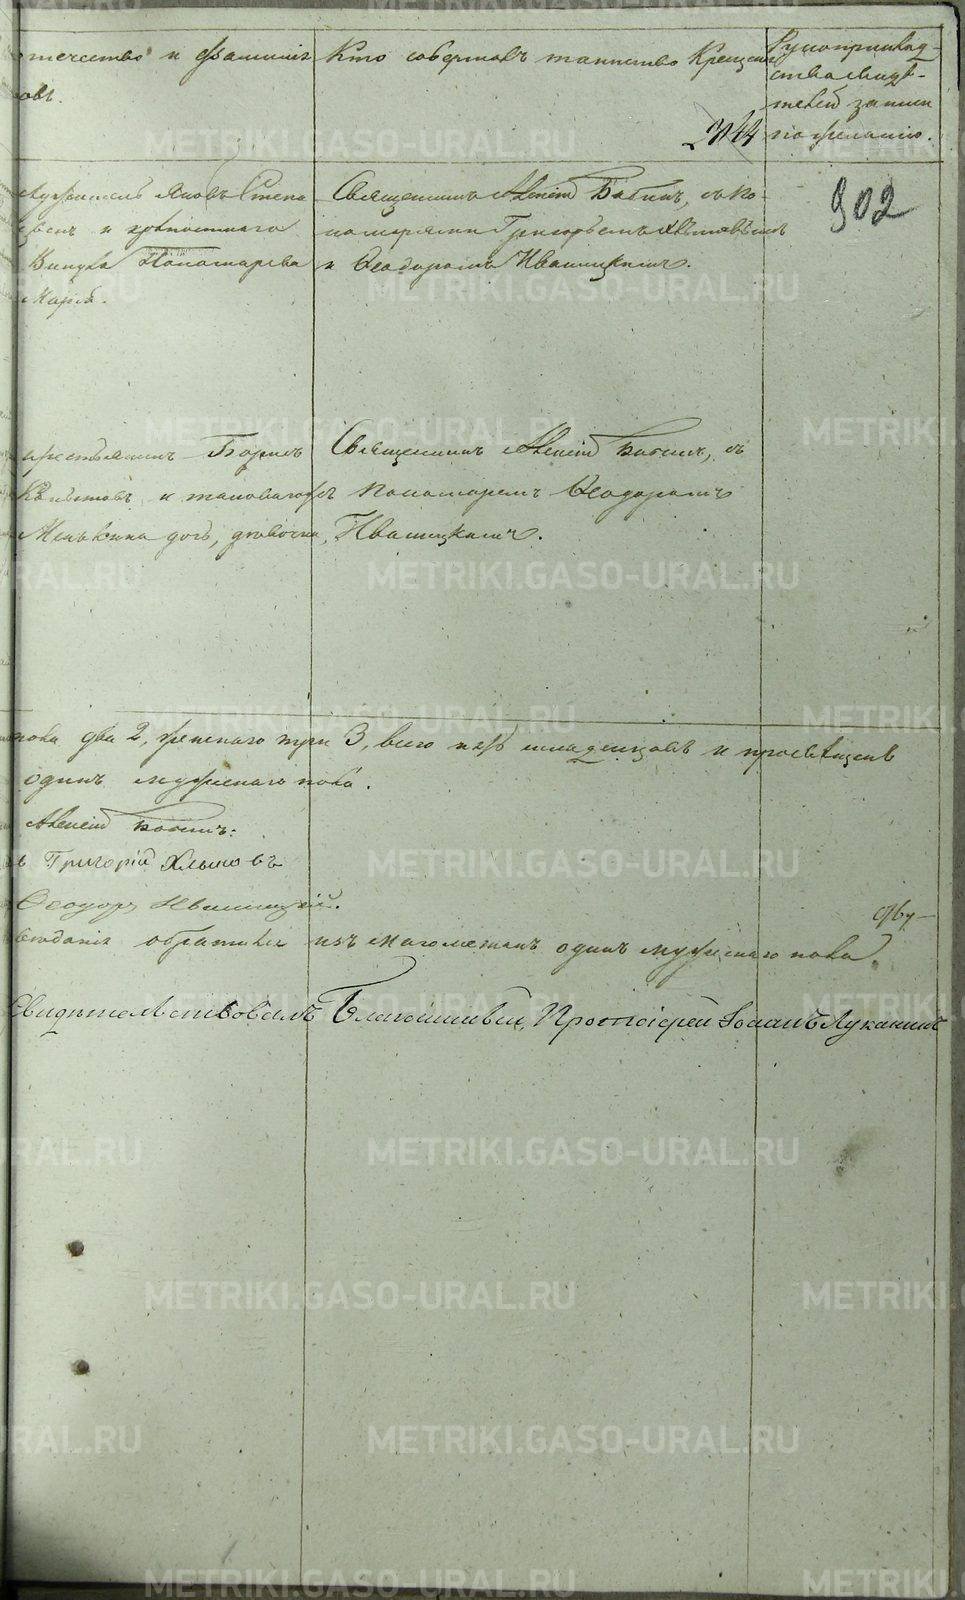 отчество и фамилія
овъ.
Кто совершалъ таинство Крещенія
Рукоприклад-
ства свидѣ-
телей записи
по желанію.
344
902
Яковъ Степа
и крѣпостнаго
Викула Пономарева
Марѳа.
Священникъ Алексій Бабинъ, съ По-
номарями Григорьемъ Хлыновымъ
и Ѳеодоромъ Ивановскимъ.
крестьянинъ Борисъ
и таковагожъ
дочь, дѣвочка,
Священникъ Алексій Бабинъ, съ
Пономаремъ Ѳеодоромъ
пола два 2, женскаго три 3, всего пять младенцовъ и просвѣщенъ
одинъ мужескаго пола.
Алексій Бабинъ.
ь Григорій Хлыновъ
Ѳеодоръ
обратился изъ магометанъ одинъ мужескаго пола.
Свидѣтельствовалъ Благочинный Протоіерей Іоаннъ Луканинъ
METRIKI.GASO-URAL.RU